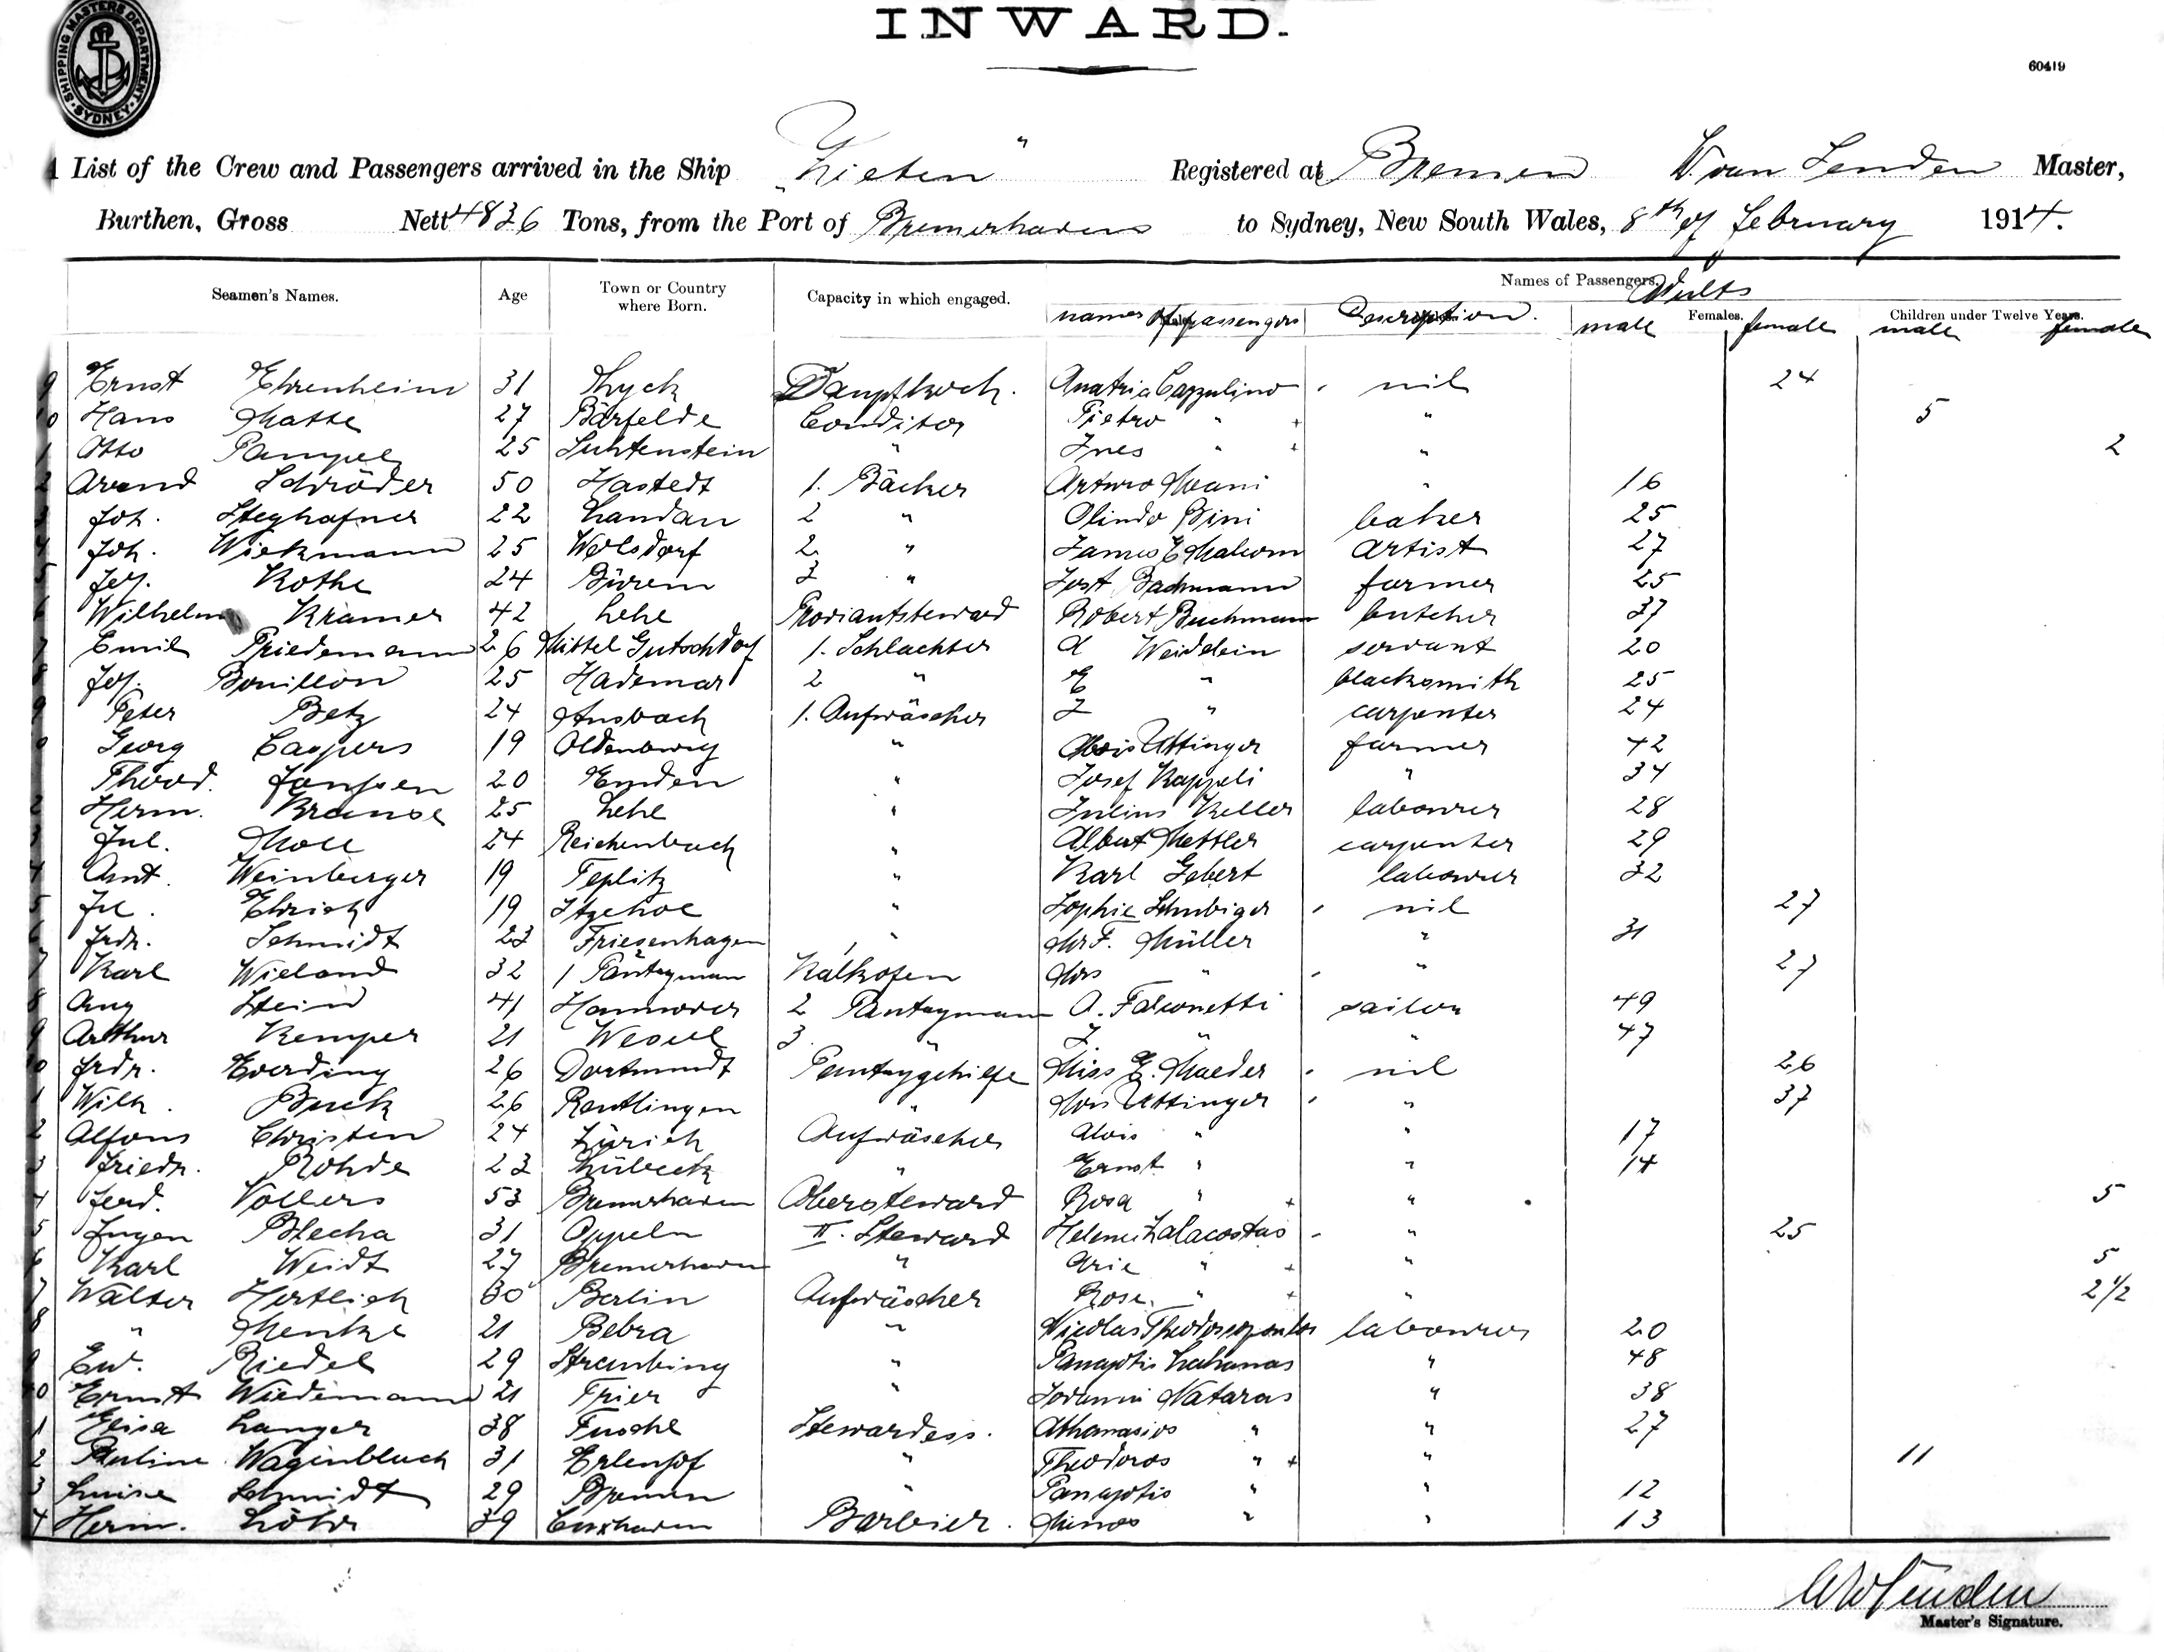 SHIPPING MASTERS DEPARTMENT. SYDNEY.
INWARD.
60419
List of the Crew and Passengers arrived in the Ship „Zieten" Registered at Bremen W. van Senden Master,
Burthen, Gross Nett 4836 Tons, from the Port of Bremerhaven to Sydney, New South Wales, 8th of February 1914.
Seamen's Names. Age Town or Country where Born. Capacity in which engaged. Names of Passengers. Adults
names of passengers Description. male Females. female Children under Twelve Years. male female
9 Ernst Ehrenheim 31 Lyck Dampfkoch. Cappulino nil 24
0 Hans Matte 27 Bärfelde Conditor Pietro " + " 5
1 Otto Pampel 25 Lichtenstein " Ines " + " 2
2 Arend Schröder 50 Hastedt 1. Bäcker Arturo " 16
3 Joh. Steghafner 22 Landau 2 " Olindo Bini baker 25
4 Joh. Wiekmann 25 Wolsdorf 2. " James E Malcom artist 27
5 Jos. Rothe 24 Büren 3 " Jost Bachmann farmer 25
6 Wilhelm Kramer 42 Lehe Proviantsteward Robert Buchmann butcher 37
7 Emil Friedemann 26 Mittel 1. Schlachter A Weidelein servant 20
8 Jos. Bouillon 25 Hademar 2 " E " blacksmith 25
9 Peter Betz 24 Ansbach 1. Aufwäscher J " carpenter 24
0 Georg Caspers 19 Oldenburg " Alois Uttinger farmer 42
Theod. Janssen 20 Emden " Josef Kappeli " 34
2 Herm. Krause 25 Lehe " Julius Keller labourer 28
3 Jul. Moll 24 Reichenbach " Albert Mettler carpenter 29
4 Ant. Weinberger 19 Teplitz " Karl Gebert labourer 32
5 Ehrich 19 Itzehoe " Sophie Schubiger nil 27
6 Frdr. Schmidt 23 Friesenhagen " Mr F. Müller " 31
7 Karl Wieland 32 1 Pantryman Kalkofen Mrs " " 27
8 Aug Stein 41 Hannover 2 Pantryman A. Falconetti sailor 49
9 Arthur Kemper 21 Wesel 3. " J. " " 47
0 Frdr. Everding 26 Dortmund Pantrygehilfe Miss E. Maeder nil 26
1 Wilh. Buck 26 Reutlingen " Mrs Uttinger " 37
2 Alfons Christen 24 Zürich Aufwäscher Alois " " 17
3 Friedr. Rohde 23 Lübeck " Ernst " " 14
4 Ferd. Vollers 53 Bremerhaven Obersteward Rosa " + " 5
5 Eugen Blecha 31 Oppeln II. Steward Helene Zalacostas " 25
6 Karl Weidt 27 Bremerhaven " Arie " + " 5
7 Walter Hertlich 30 Berlin Aufwäscher Rose. " + " 2 1/2
8 " Menke 21 Bebra " Nicolas labourer 20
9 Ew. Riedel 29 Straubing " Panagotis " 48
40 Ernst Wiedemann 21 Trier " Nataras " 38
1 Elisa Langer 38 Stewardess. Athanasios " " 27
2 Pauline Wagenblach 31 Erlenhof " Theodoros " + " 11
3 Luise Schmidt 29 Bremen " Panagotis " " 12
4 Herm. Löhr 39 Cuxhaven Barbier. Minos " " 13
Master's Signature.